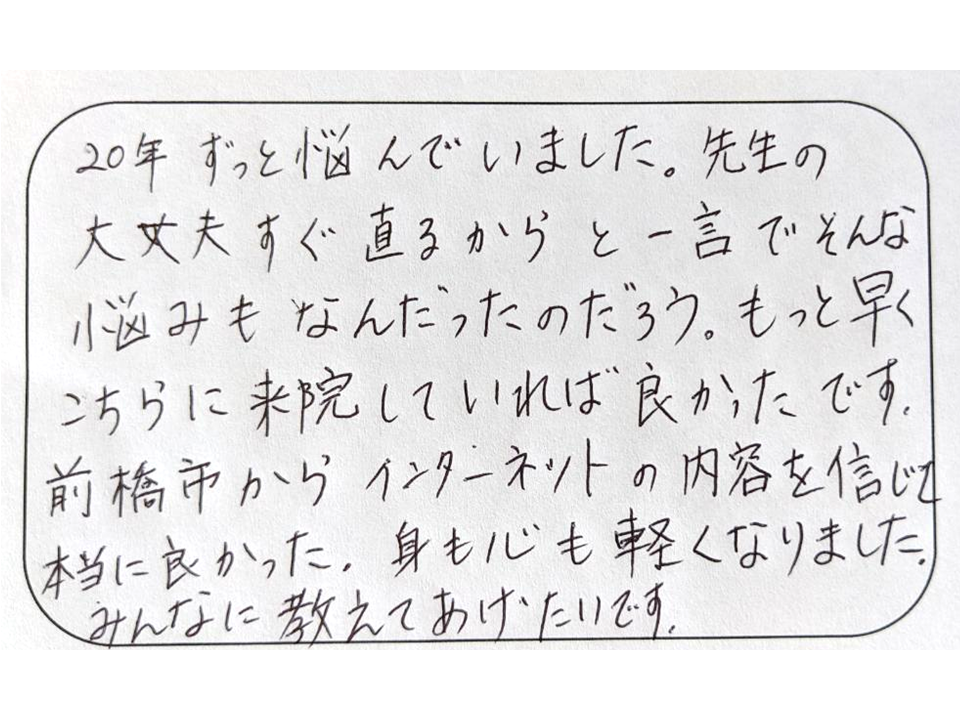 20年ずっと悩んでいました。先生の
大丈夫すぐ直るからと一言でそんな
悩みもなんだったのだろう。もっと早く
こちらに来院していれば良かったです。
前橋市からインターネットの内容を信じて
本当に良かった。身も心も軽くなりました。
みんなに教えてあげたいです。